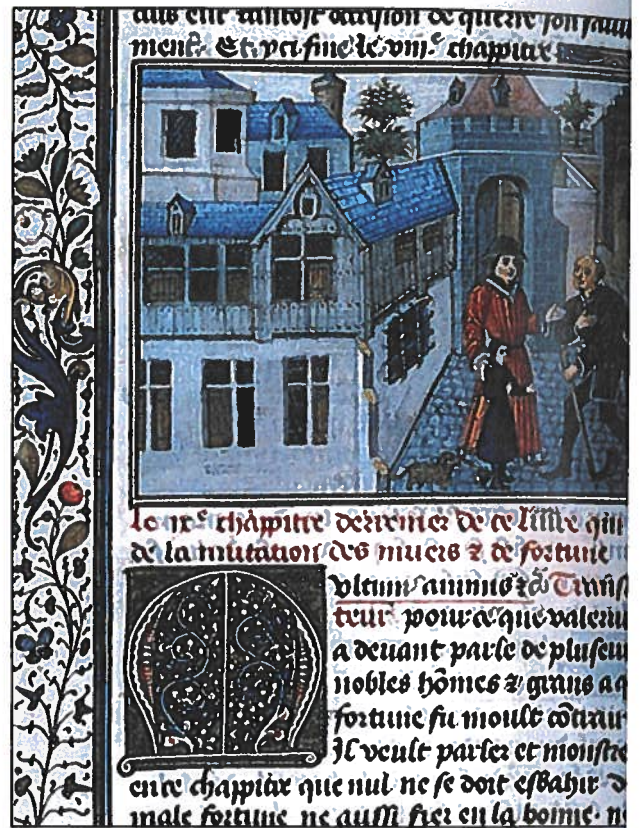 aus ene tantost occision de guerre son sauu
ment. Et ycy fine le viiie. chappitre
le ixe chappitre derrenier de ce liure qui
de la mutation des muers & de fortune
Multum animus &c Trans
teur pour ce que valeriu
a deuant parle de pluseu
nobles hommes & grans a q
fortune fu moult contrair
Il veult parler et monstre
en ce chappitre que nul ne se doit esbahir d
male fortune ne aussi fier en la bonne. n